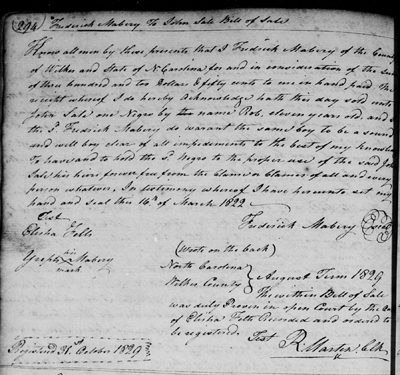 294 Frederick Mabery To John Sale Bill of Sale
Know all men by these presents that I Fredrick Mabery of the County
of Wilkes and State of N Carolina for and in consideration of the Sum
of three hundred and ten Dollars & fifty cents to me in hand paid the
receipt whereof I do hereby Acknowledge hath this day sold unto
John Sale one Negro by the name Rob, eleven years old, and I
the Sd. Fredrick Mabery do warant the same boy to be a sound
and well boy clear of all impedements to the best of my knowledge
To have and to hold the Sd. Negro to the proper use of the said John
Sale his heirs forever free from the Claim or Claims of all and every
person whatever, In testimony whereof I have hereunto set my
hand and seal this 16th of March 1822
Test Frederick Mabery (Seal)
Elisha Fells
his
Mabery
mark
(Wrote on the back)
North Carolina
Wilkes County } August Term 1829
The within Bill of Sale
was duly Proven in open Court by the Oath
of Elisha Fells Recorded and ordered to
be registered Test
R Martin, Clk
Registered 31st October 1829